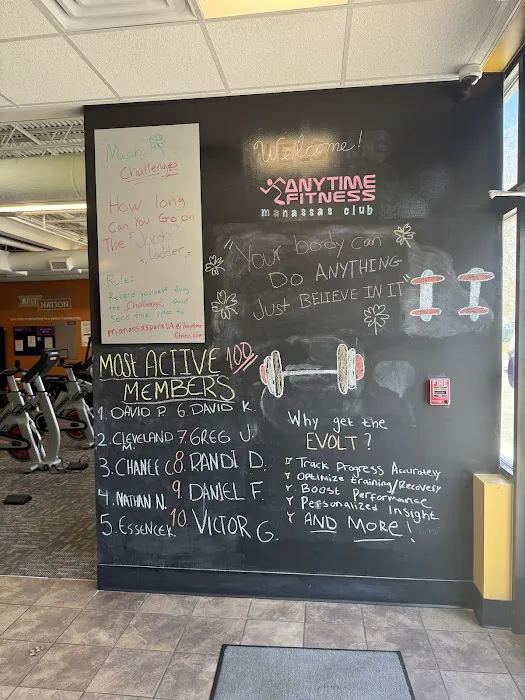 March
Challenges
How long
Can You Go on
The "Jacobs
Ladder"
Rules
Record yourself doing
the Challenge and
Send the video to
Welcome!
ANYTIME
FITNESS
manassas club
"Your body can
Do ANYTHING
Just BELIEVE IN IT"
MOST ACTIVE 100
MEMBERS
1. DAVID P. 6. DAVID K.
2. CLEVELAND M. 7 GREG J.
3. CHANEE C. 8. RANDI D.
4. NATHAN N. 9. DANIEL F.
5. ESSENCE K. 10 VICTOR G.
Why get the
EVOLT?
Track Progress Accurately
Optimize training/Recovery
Boost Performance
Personalized Insight
AND MORE!
FIRE
NATION